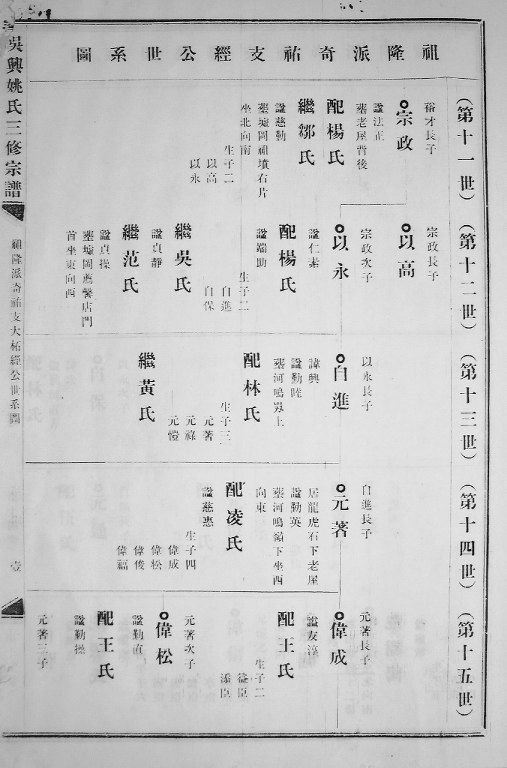 祖隆派奇祐支經公世系圖
（第十一世）
裕才長子
宗政
諡法正
塟老屋背後
配楊氏
繼鄒氏
諡慈勤
塟墟岡祖墳右片
坐北向南
生子二
以高
以永
（第十二世）
宗政長子
以高
宗政次子
以永
諡仁素
配楊氏
諡端勤
生子二
自進
自保
繼吳氏
諡貞靜
繼范氏
諡貞操
塟墟岡薦譽店門
首坐東向西
（第十三世）
以永長子
自進
諱興
諡勤睦
塟河鳴㟁上
配林氏
生子三
元著
元祿
元愷
繼黃氏
（第十四世）
自進長子
元著
居龍虎石下老屋
諡勤英
塟河鳴嶺下坐西
向東
配凌氏
諡慈惠
生子四
偉成
偉松
偉俊
偉福
（第十五世）
元著長子
偉成
諡友淳
配王氏
生子二
益臣
添臣
元著次子
偉松
諡勤直
配王氏
諡勤操
元著三子
吳興姚氏三修宗譜
祖隆派奇祐支大柘經公世系圖
壹